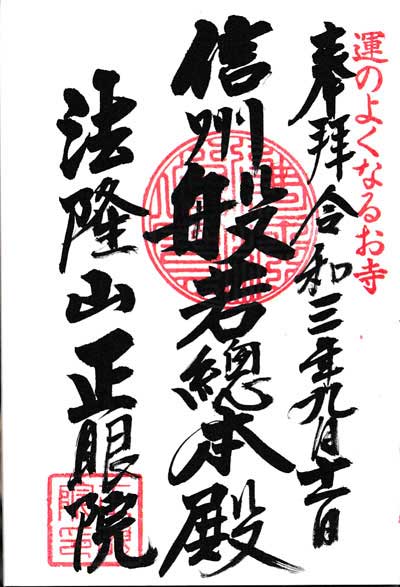 運のよくなるお寺
奉拝 令和三年九月十二日
信州般若總本殿
法隆山正眼院